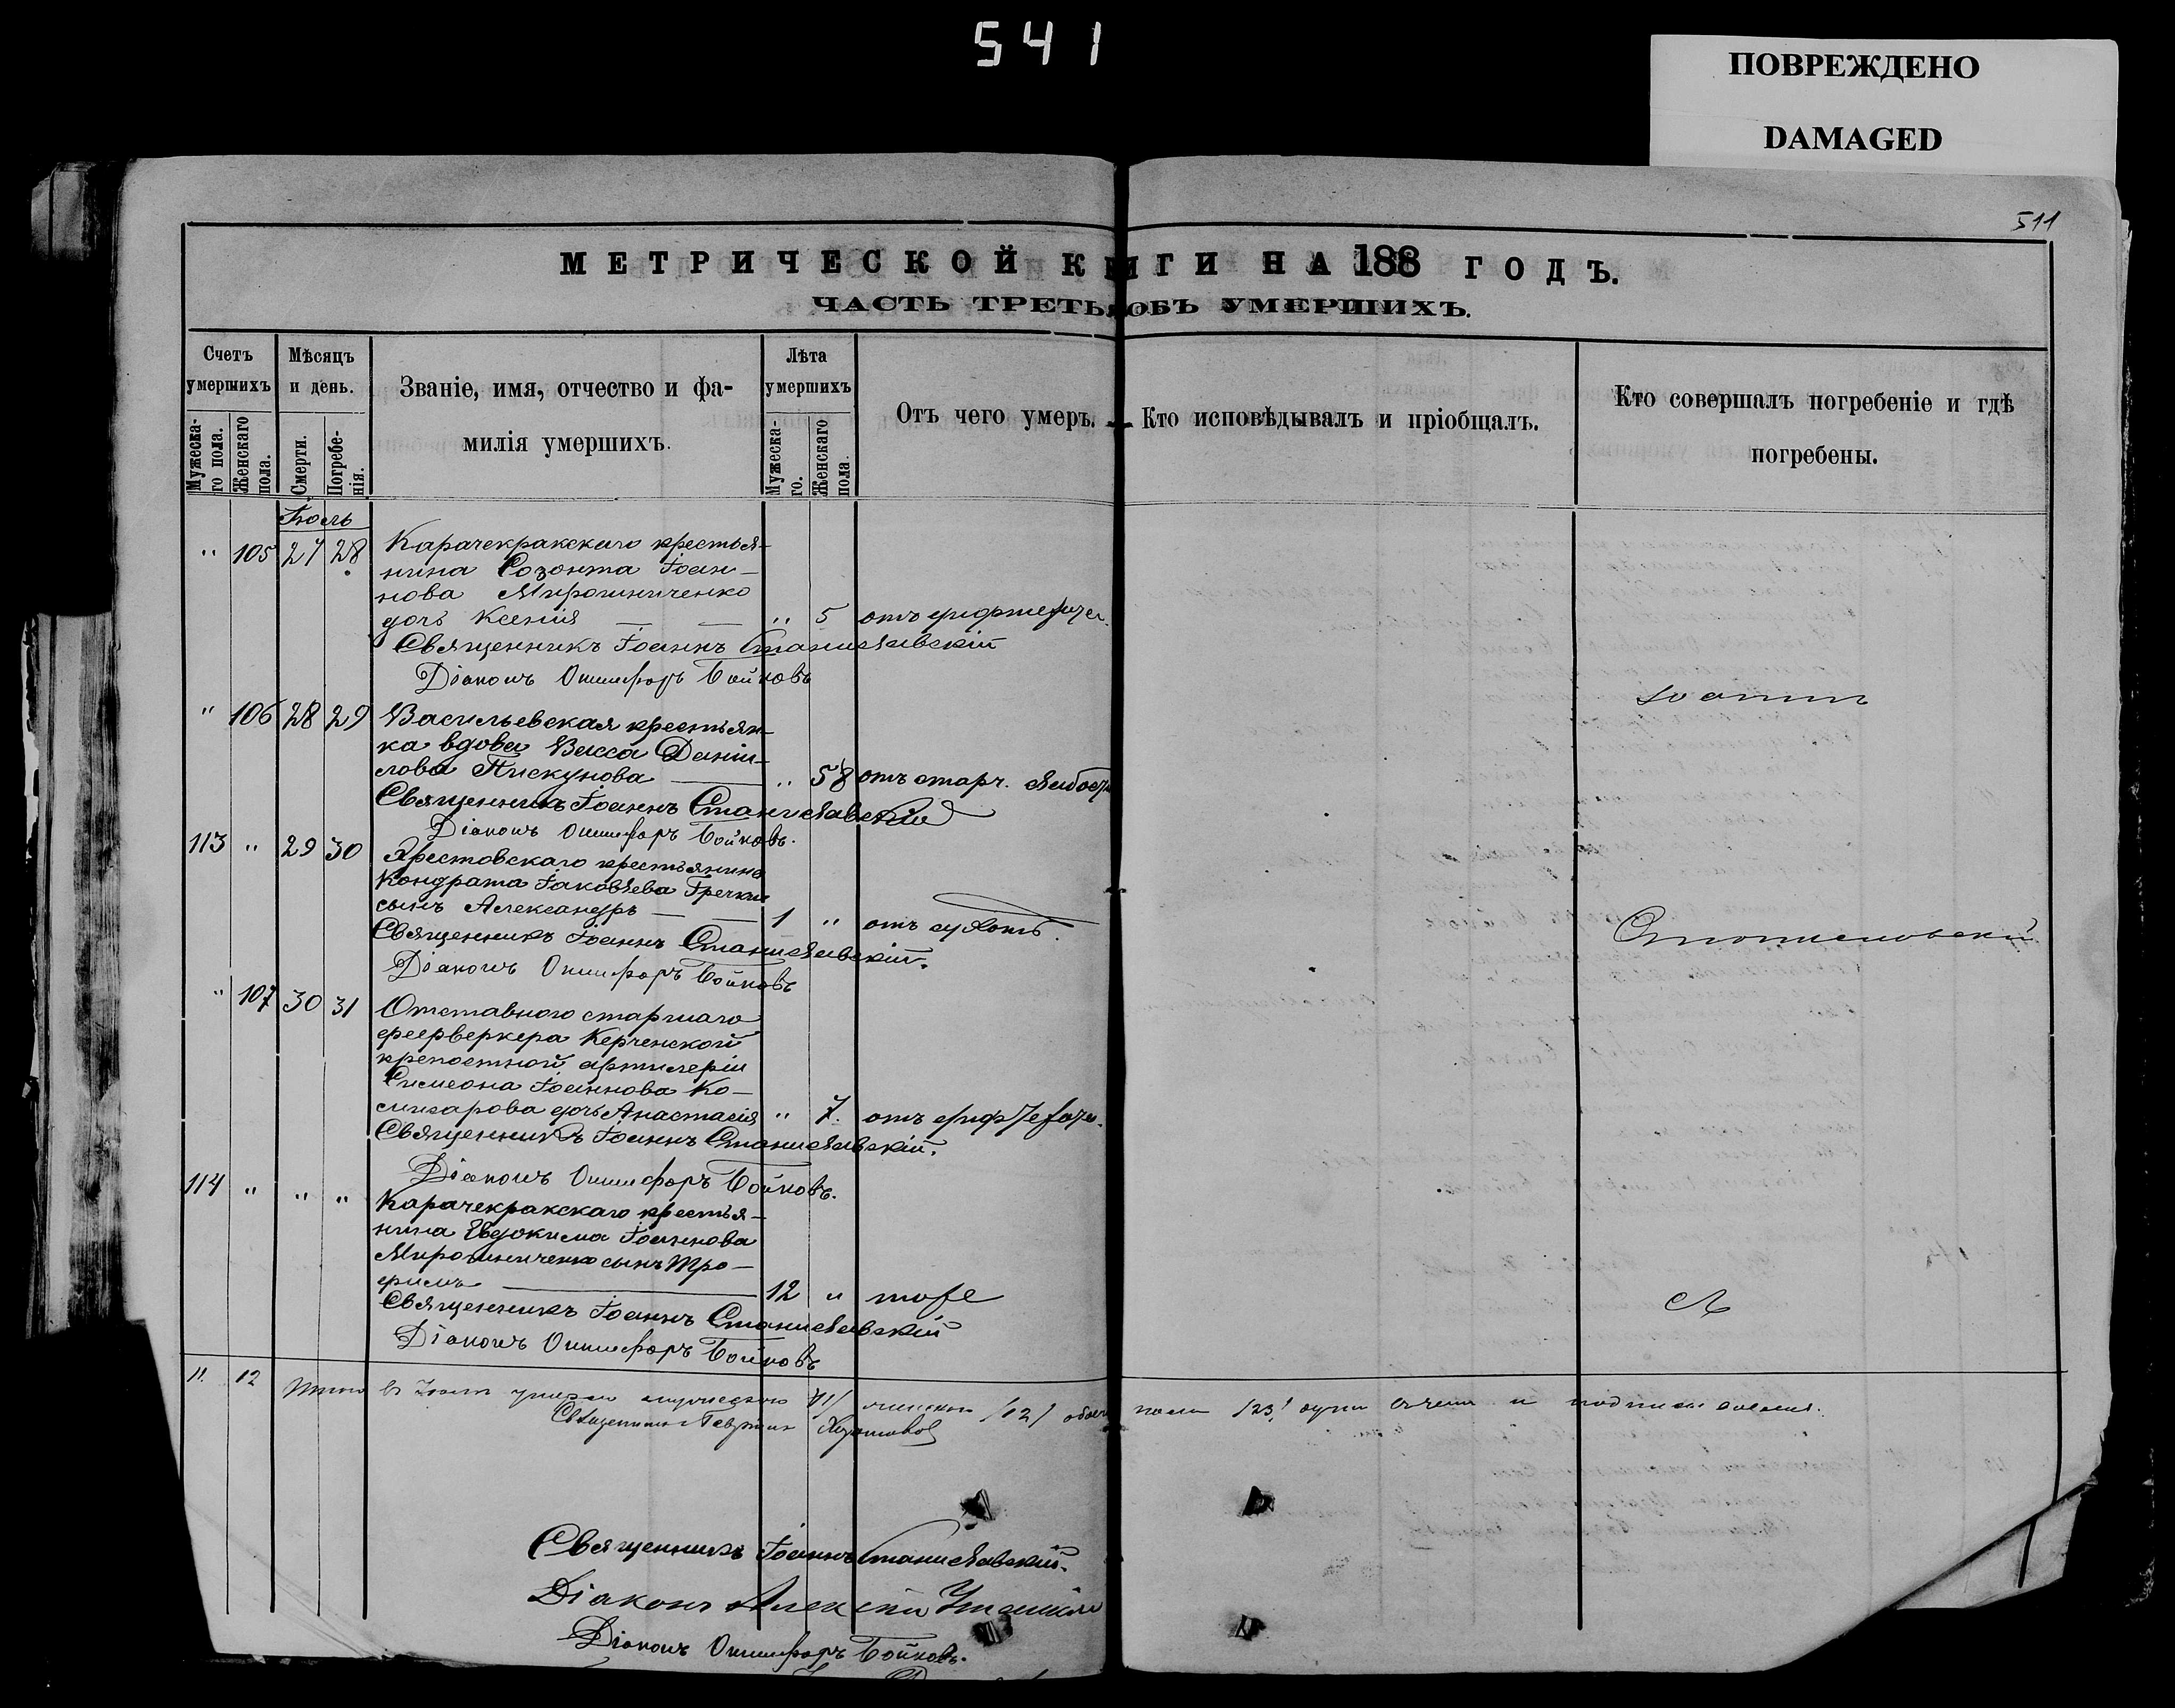 541
ПОВРЕЖДЕНО
DAMAGED
511
МЕТРИЧЕСКОЙ КНИГИ НА 188 ГОДЪ.
ЧАСТЬ ТРЕТЬЯ ОБЪ УМЕРШИХЪ.
Счетъ умершихъ
Мужеска-го пола.
Женскаго пола.
Мѣсяцъ и день.
Смерти.
Погребе-нія.
Званіе, имя, отчество и фа-
милія умершихъ.
Лѣта умершихъ
Мужеска-го.
Женскаго пола.
Отъ чего умеръ.
Кто исповѣдывалъ и пріобщалъ.
Кто совершалъ погребеніе и гдѣ
погребены.
Іюль
" 105 27 28 Карачекракскаго крестья-
нина Созонта Іоан-
нова Мирошниченко
дочь Ксенія " 5 отъ
Священникъ Іоаннъ Станиславскій
Діаконъ Онисифоръ Бойковъ
Іоаннъ
" 106 28 29 Васильевская крестьян-
ка вдова Васса Даніи-
лова Пискунова " 58 отъ старч. слабост
Священникъ Іоаннъ Станиславскій
Діаконъ Онисифоръ Бойковъ.
113 " 29 30 крестьянина
Кондрата Іаковлева Гречки
сынъ Александръ 1 " отъ сухотъ.
Священникъ Іоаннъ Станиславскій.
Станиславскій
Діаконъ Онисифоръ Бойковъ
" 107 30 31 Отставного старшаго
феерверкера Керченской
крепостной артилеріи
Симеона Іоаннова Ко-
дочь Анастасія " 7. отъ
Священникъ Іоаннъ Станиславскій.
Діаконъ Онисифоръ Бойковъ.
114 " " " Карачекракскаго крестья-
нина Евдокима Іоаннова
Мирошниченко сынъ Тро-
фимъ 12 " тоже
Священникъ Іоаннъ Станиславскій
Діаконъ Онисифоръ Бойковъ
11. 12 Итого въ умерло мужескаго /11/ женскаго /12/ обоего пола /23/ души
Священникъ Гавріилъ
Священникъ Іоаннъ Станиславскій.
Діаконъ Алексій
Діаконъ Онисифоръ Бойковъ.